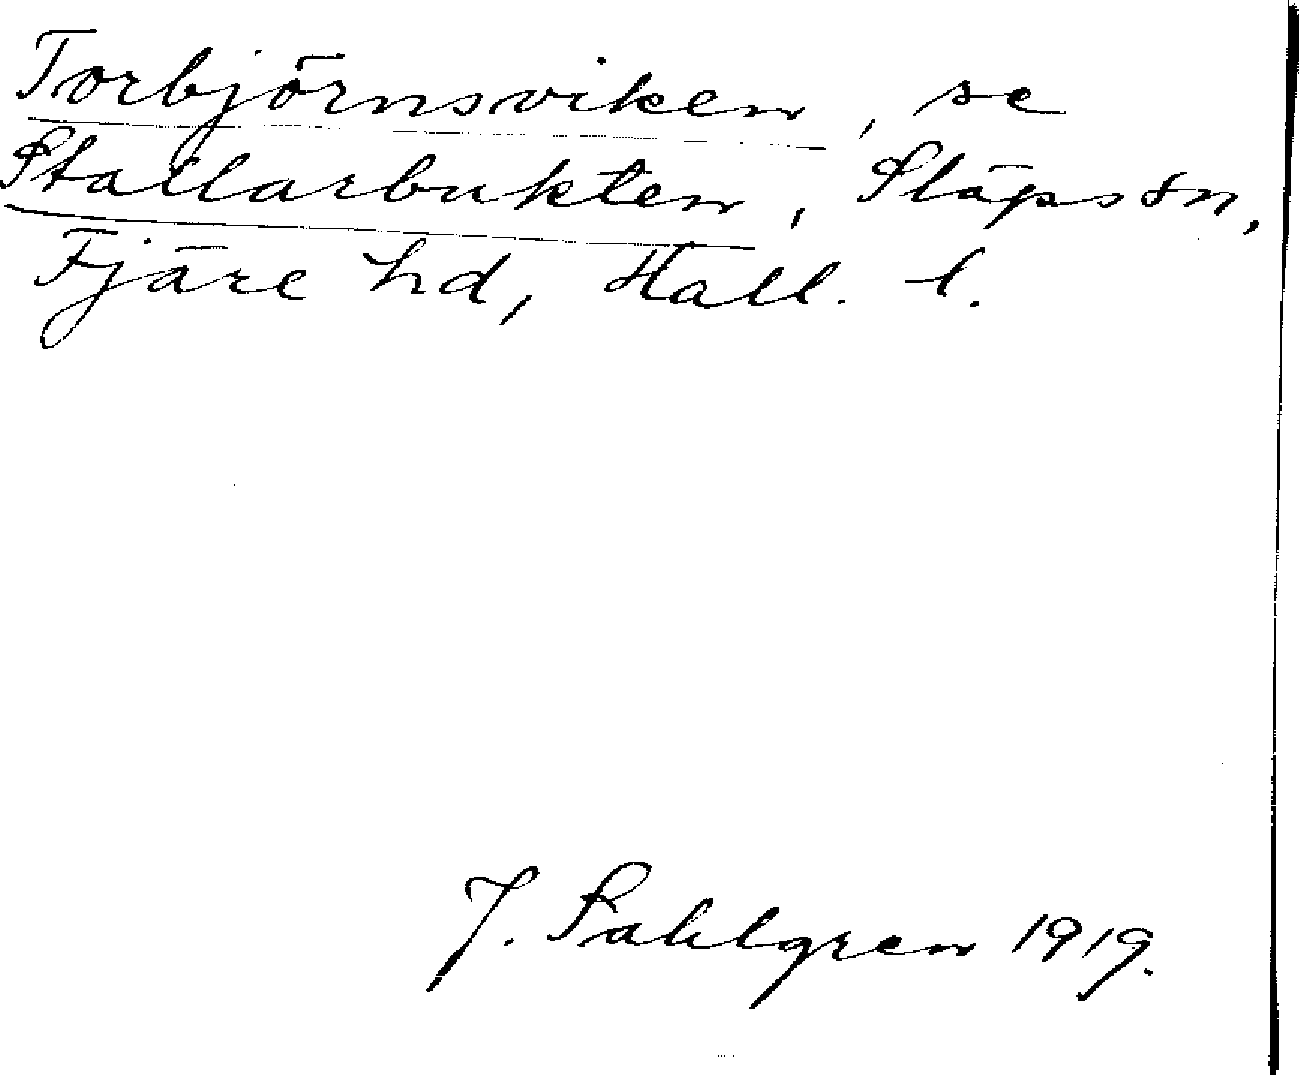 Torbjörnsviken, se
Stallarbukten, Släpsön,
Fjäre hd, Hall. l.
J. Sahlgren 1919.